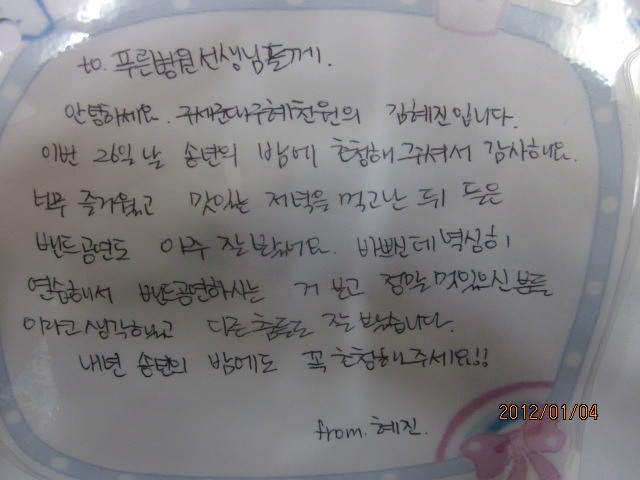 to. 푸른병원선생님들께.
안녕하세요. 구세군대구혜천원의 김혜진입니다.
이번 26일날 송년의 밤에 초청해주셔서 감사해요.
너무 즐거웠고 맛있는 저녁을 먹고난 뒤 들은
밴드공연도 아주 잘 봤어요. 바쁘신데 열심히
연습해서 밴드공연하시는 거 보고 정말 멋있으신 분들
이라고 생각하였고 다른 춤들도 잘 봤습니다.
내년 송년의 밤에도 꼭 초청해주세요!!
from. 혜진.
2012/01/04